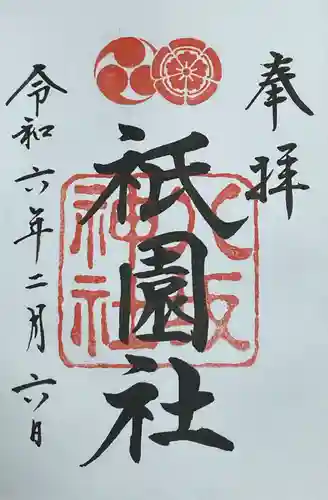 奉拝
祇園社
八坂
神社
令和六年二月六日